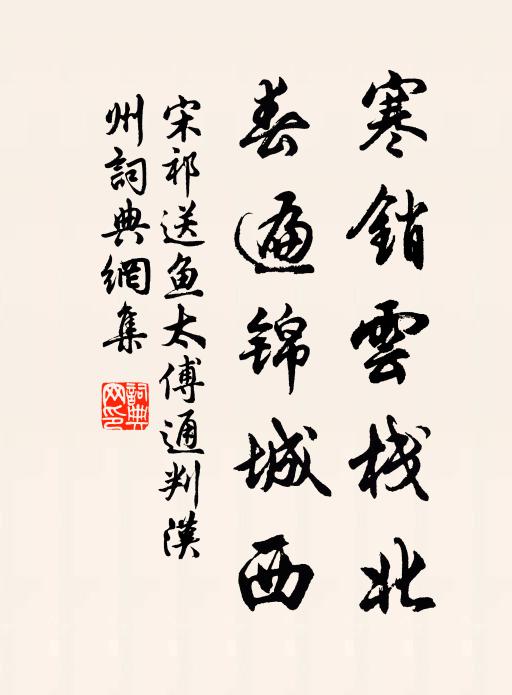 寒銷雲棧北
春遍錦城西
宋祁送鱼太傅通判漢
州詞典網集
詞典网印